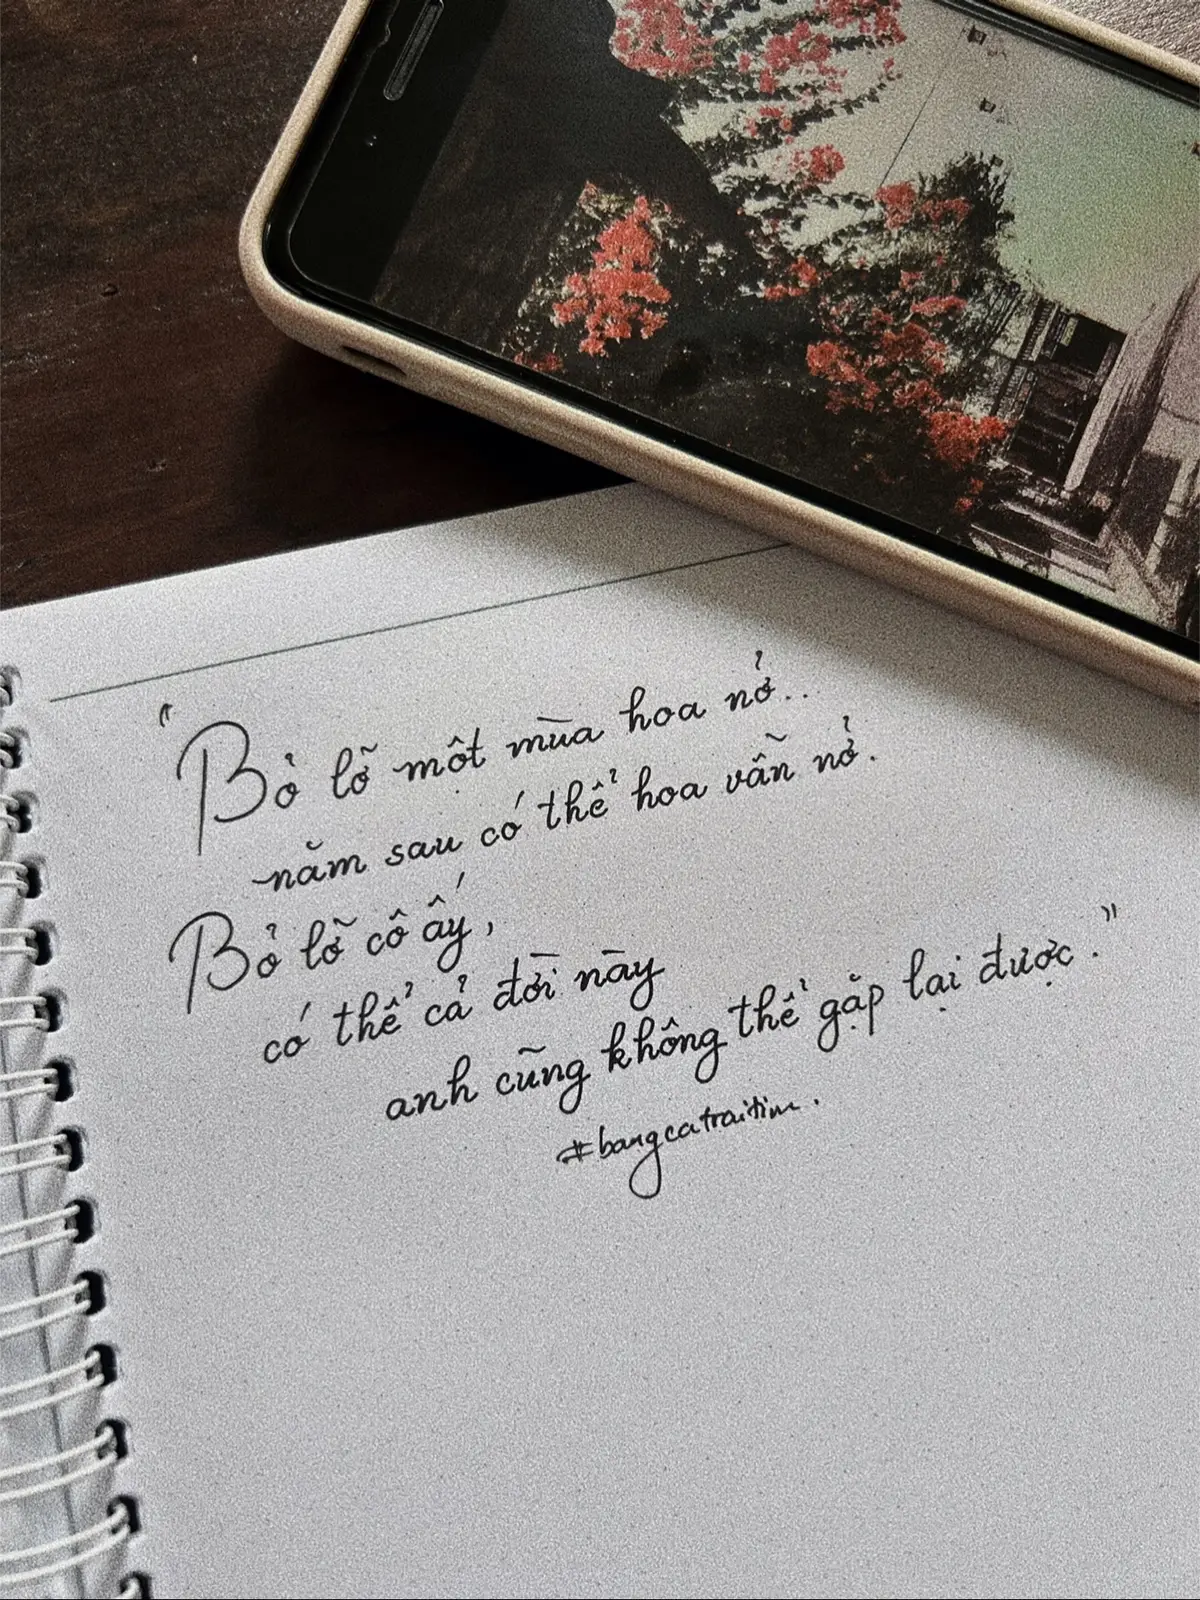 "Bỏ lỡ một mùa hoa nở...
năm sau có thể hoa vẫn nở.
Bỏ lỡ cô ấy,
có thể cả đời này
anh cũng không thể gặp lại được."
#bangcatraitim.